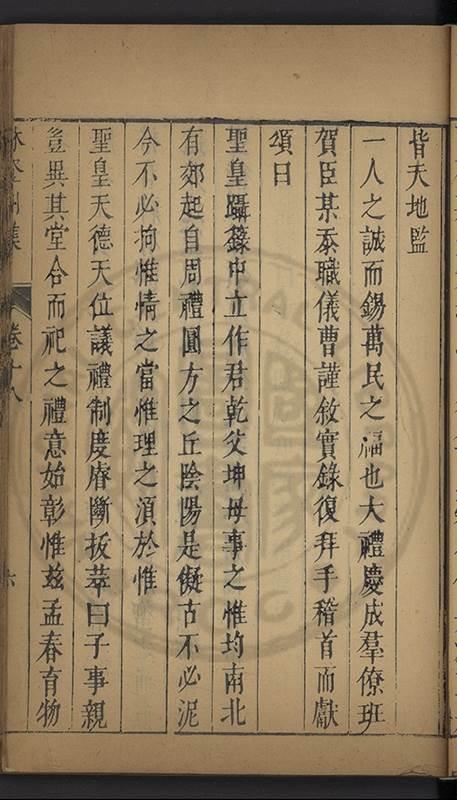 皆天地監
一人之誠而錫萬民之福也大禮慶成羣僚班
賀臣某忝職儀曹謹敘實錄復拜手稽首而獻
頌曰
聖皇躡籙中立作君乾父坤母事之惟均南北
有郊起自周禮圓方之丘陰陽是儗古不必泥
今不必拘惟情之當惟理之湏於惟
聖皇天德天位議禮制度睿斷拔萃曰子事親
豈異其堂合而祀之禮意始彰惟兹孟春育物
卷十八
六